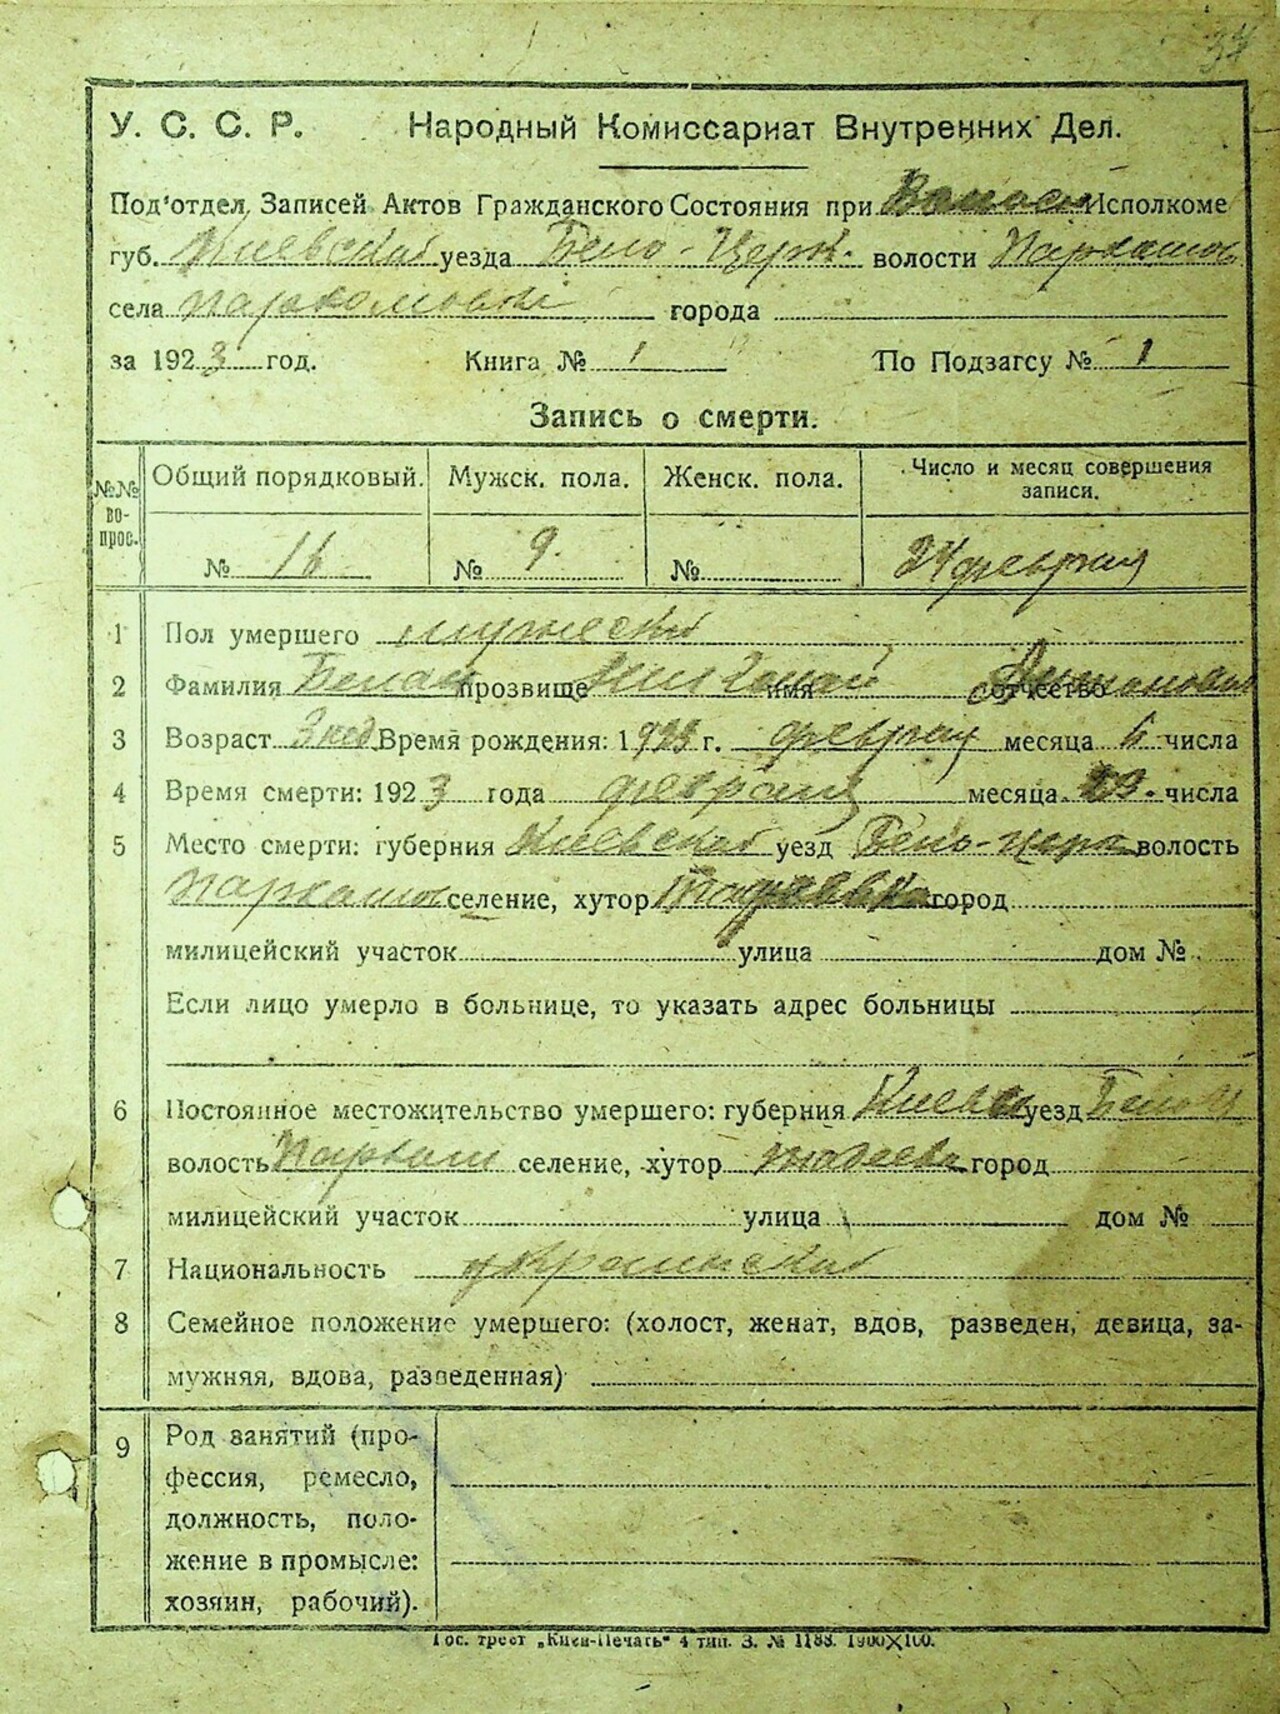 37
У. С. С. Р. Народный Комиссариат Внутренних Дел.
Под'отдел, Записей Актов Гражданского Состояния при Исполкоме
губ. Киевской уезда Бело-Церк. волости
села Пархомовки города
за 1923 год. Книга № 1 По Подзагсу № 1
Запись о смерти.
№№ во-прос. Общий порядковый. Мужск. пола. Женск. пола. Число и месяц совершения записи.
№ 16 № 9. № 24 февраля
1 Пол умершего мужской
2 Фамилия прозвище Николай имя отчество
3 Возраст 3 нед. Время рождения: 1923 г. февраля месяца 6 числа
4 Время смерти: 1923 года февраля месяца 23. числа
5 Место смерти: губерния Киевской уезд Бело-церк волость
селение, хутор город
милицейский участок улица дом №
Если лицо умерло в больнице, то указать адрес больницы
6 Постоянное местожительство умершего: губерния уезд
волость селение, хутор город
милицейский участок улица дом №
7 Национальность украинской
8 Семейное положение умершего: (холост, женат, вдов, разведен, девица, за-
мужняя, вдова, разведенная)
9 Род занятий (про-
фессия, ремесло,
должность, поло-
жение в промысле:
хозяин, рабочий).
Гос. трест „Киев-Печать" 4 тип. З. № 1188. 1900×100.